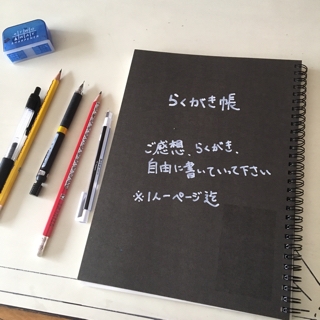 らくがき帳
ご感想、らくがき、
自由に書いていって下さい
※1人一ページ迄